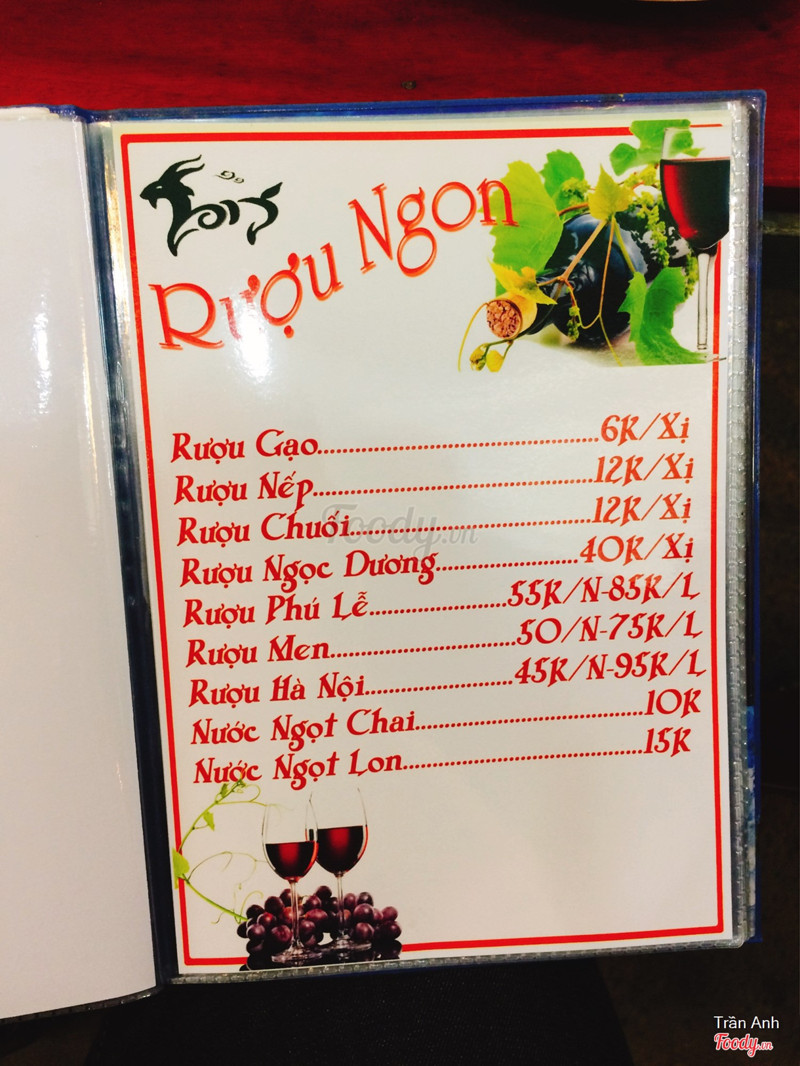 Rượu Ngon
Rượu Gạo..........6K/Xị
Rượu Nếp..........12K/Xị
Rượu Chuối..........12K/Xị
Rượu Ngọc Dương..........40K/Xị
Rượu Phú Lễ..........55K/N-85K/L
Rượu Men..........50/N-75K/L
Rượu Hà Nội..........45K/N-95K/L
Nước Ngọt Chai..........10K
Nước Ngọt Lon..........15K
Foody.vn
Trần Anh
Foody.vn